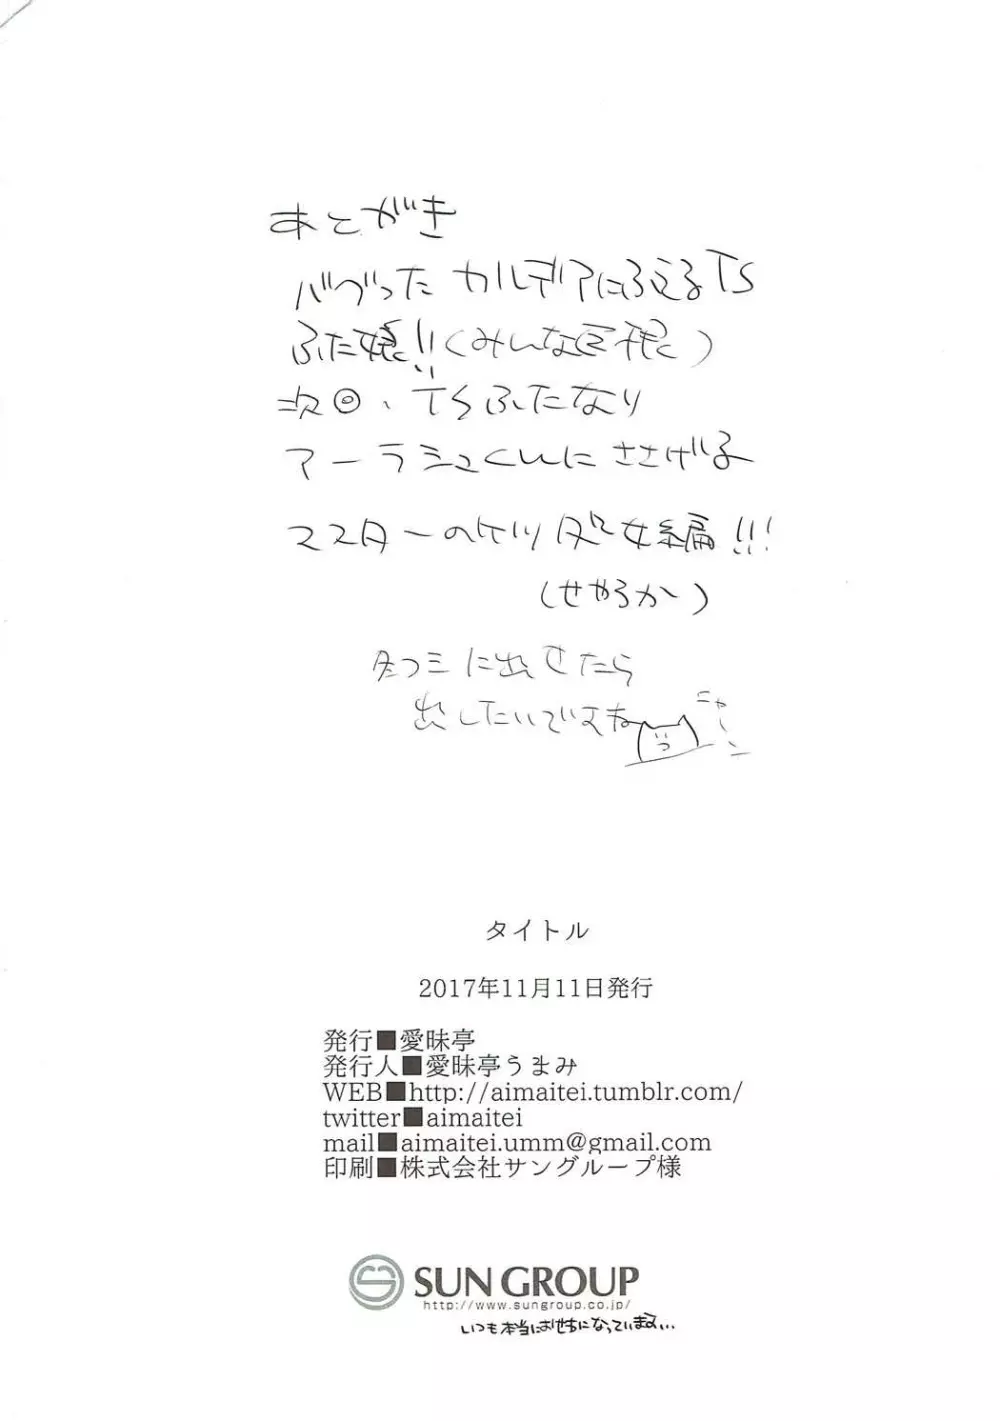 あとがき
バグった カルデアにふえるTS
ふた娘!!(みんな巨根)
次回、TSふたなり
アーラシュくんにささげる
マスターのケツ処女編!!!
(せやろか)
冬コミに出せたら
出したいですね
ニャーン
タイトル
2017年11月11日発行
発行■愛昧亭
発行人■愛昧亭うまみ
WEB■http://aimaitei.tumblr.com/
twitter■aimaitei
mail■aimaitei.umm@gmail.com
印刷■株式会社サングループ様
SUN GROUP
http://www.sungroup.co.jp/
いつも本当にお世話になっています...